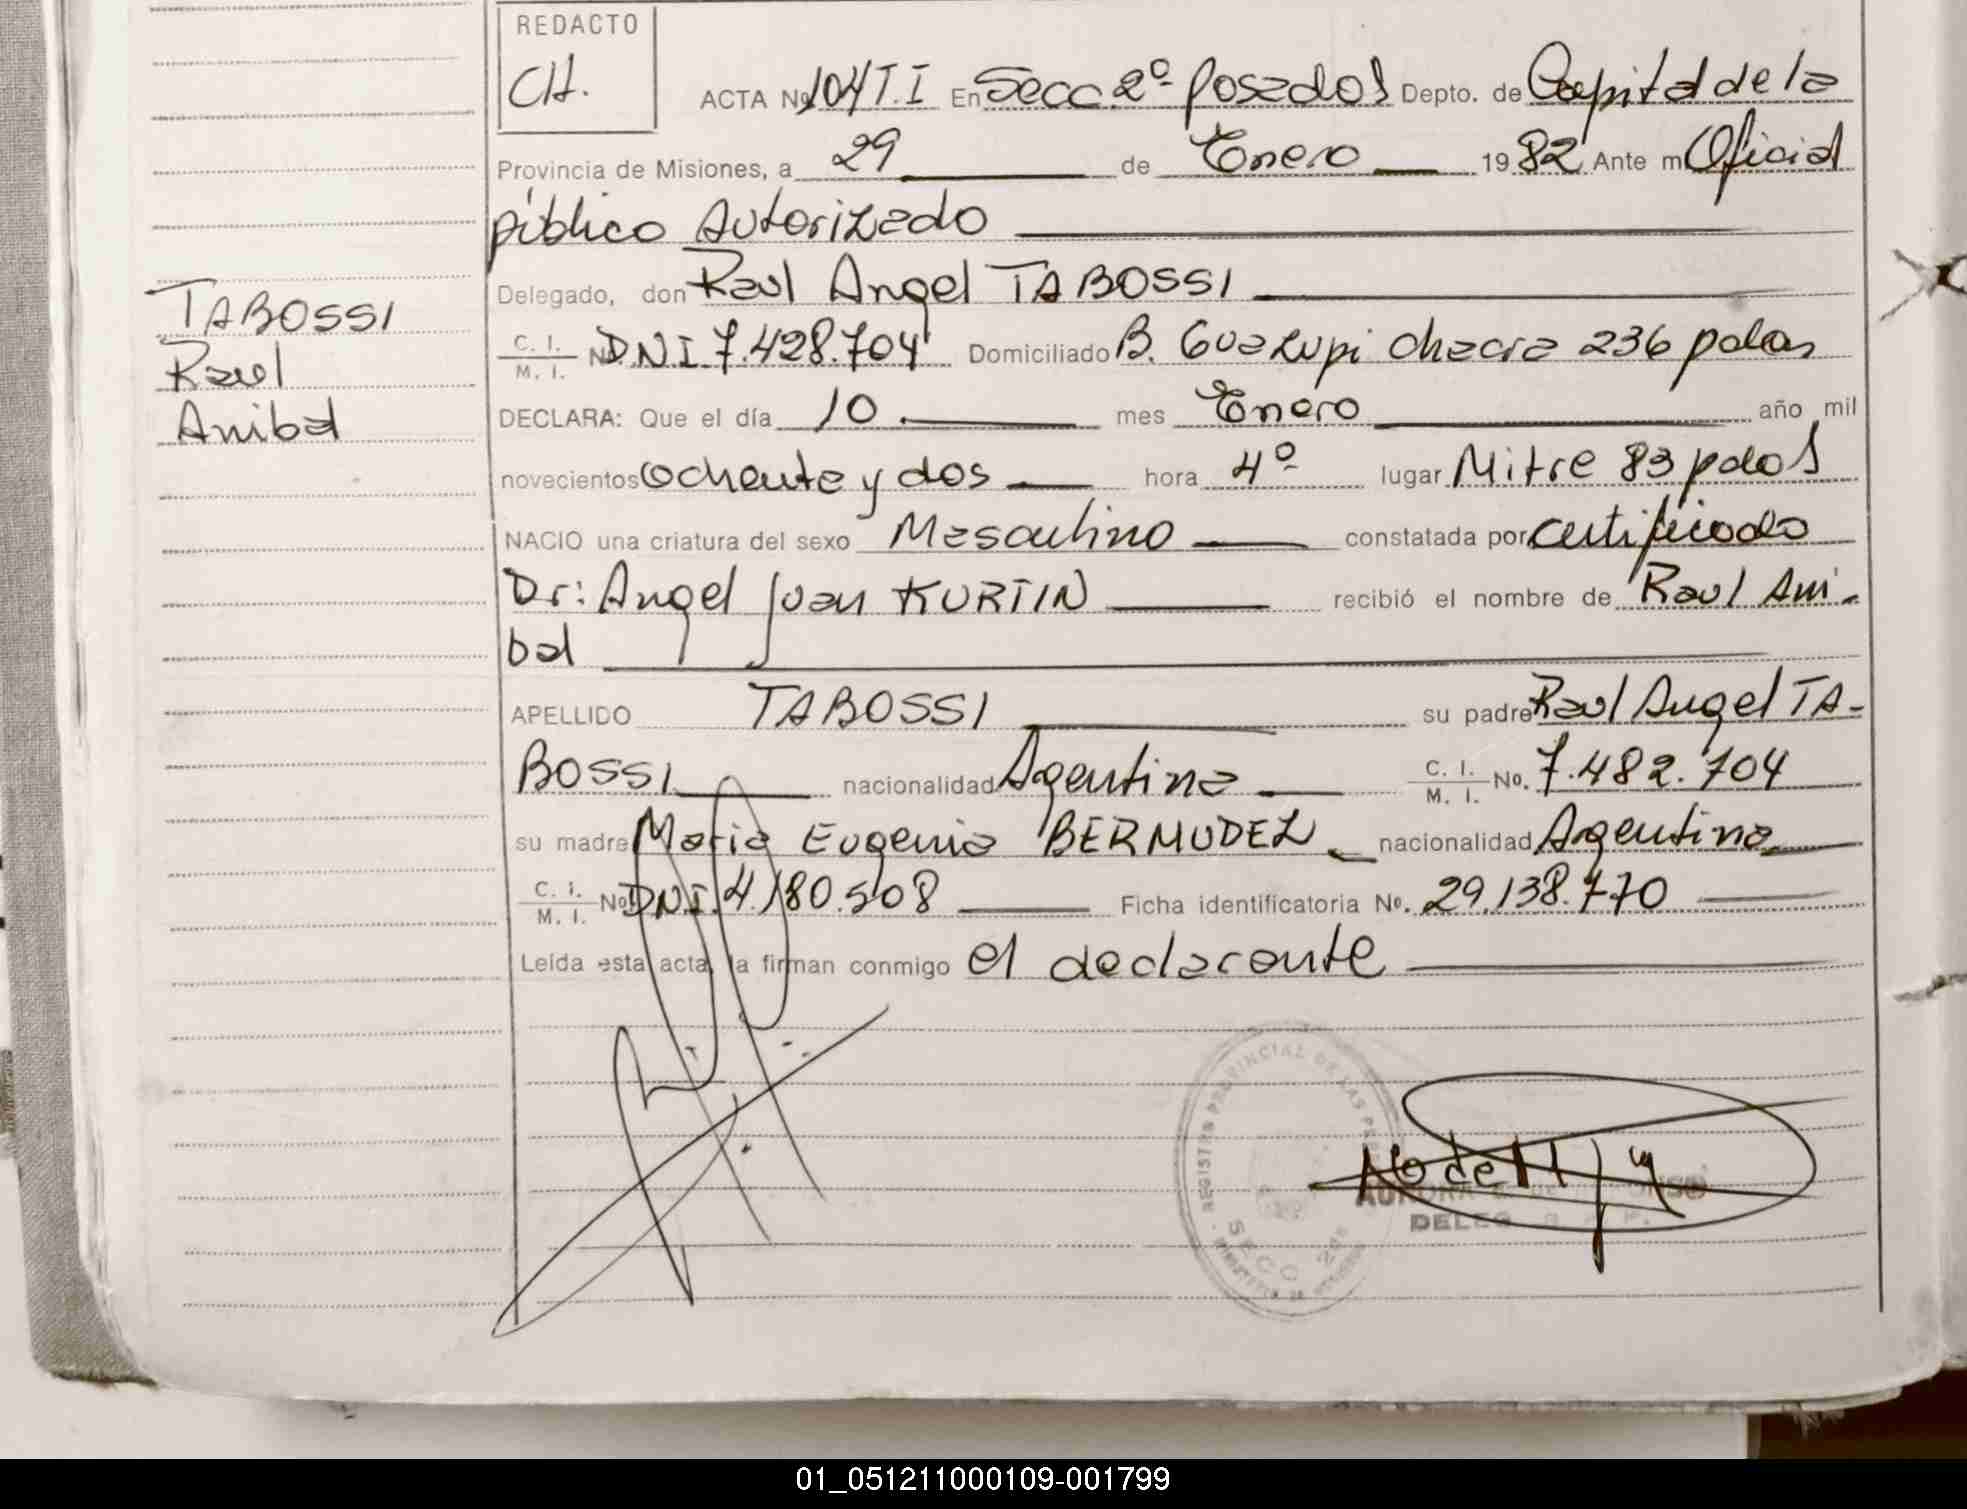 REDACTO
CH.
ACTA Nº 104 T.I En Secc. 2º Posadas Depto. de Capital de la
Provincia de Misiones, a 29 de Enero 1982 Ante mi Oficial
público Autorizado
Delegado, don Raul Angel TABOSSI
C. I. M. I. Nº DNI 7.428.704 Domiciliado B. Gua Rupi Chacra 236 pdas
DECLARA: Que el día 10 mes Enero año mil
novecientos ochenta y dos hora 4º lugar Mitre 83 pdas
NACIO una criatura del sexo Masculino constatada por certificado
Dr: Angel Juan KURTIN recibió el nombre de Raul Ani-
bal
APELLIDO TABOSSI su padre Raul Angel TA-
BOSSI nacionalidad Argentina C. I. M. I. No. 7.482.704
su madre Maria Eugenia BERMUDEZ nacionalidad Argentina
C. I. M. I. Nº DNI. 4.180.508 Ficha identificatoria No. 29.138.770
Leída esta acta, la firman conmigo el declarante
TABOSSI
Raul
Anibal
REGISTRO PROVINCIAL DE LAS
SECC 2da
DELEG
01_051211000109-001799